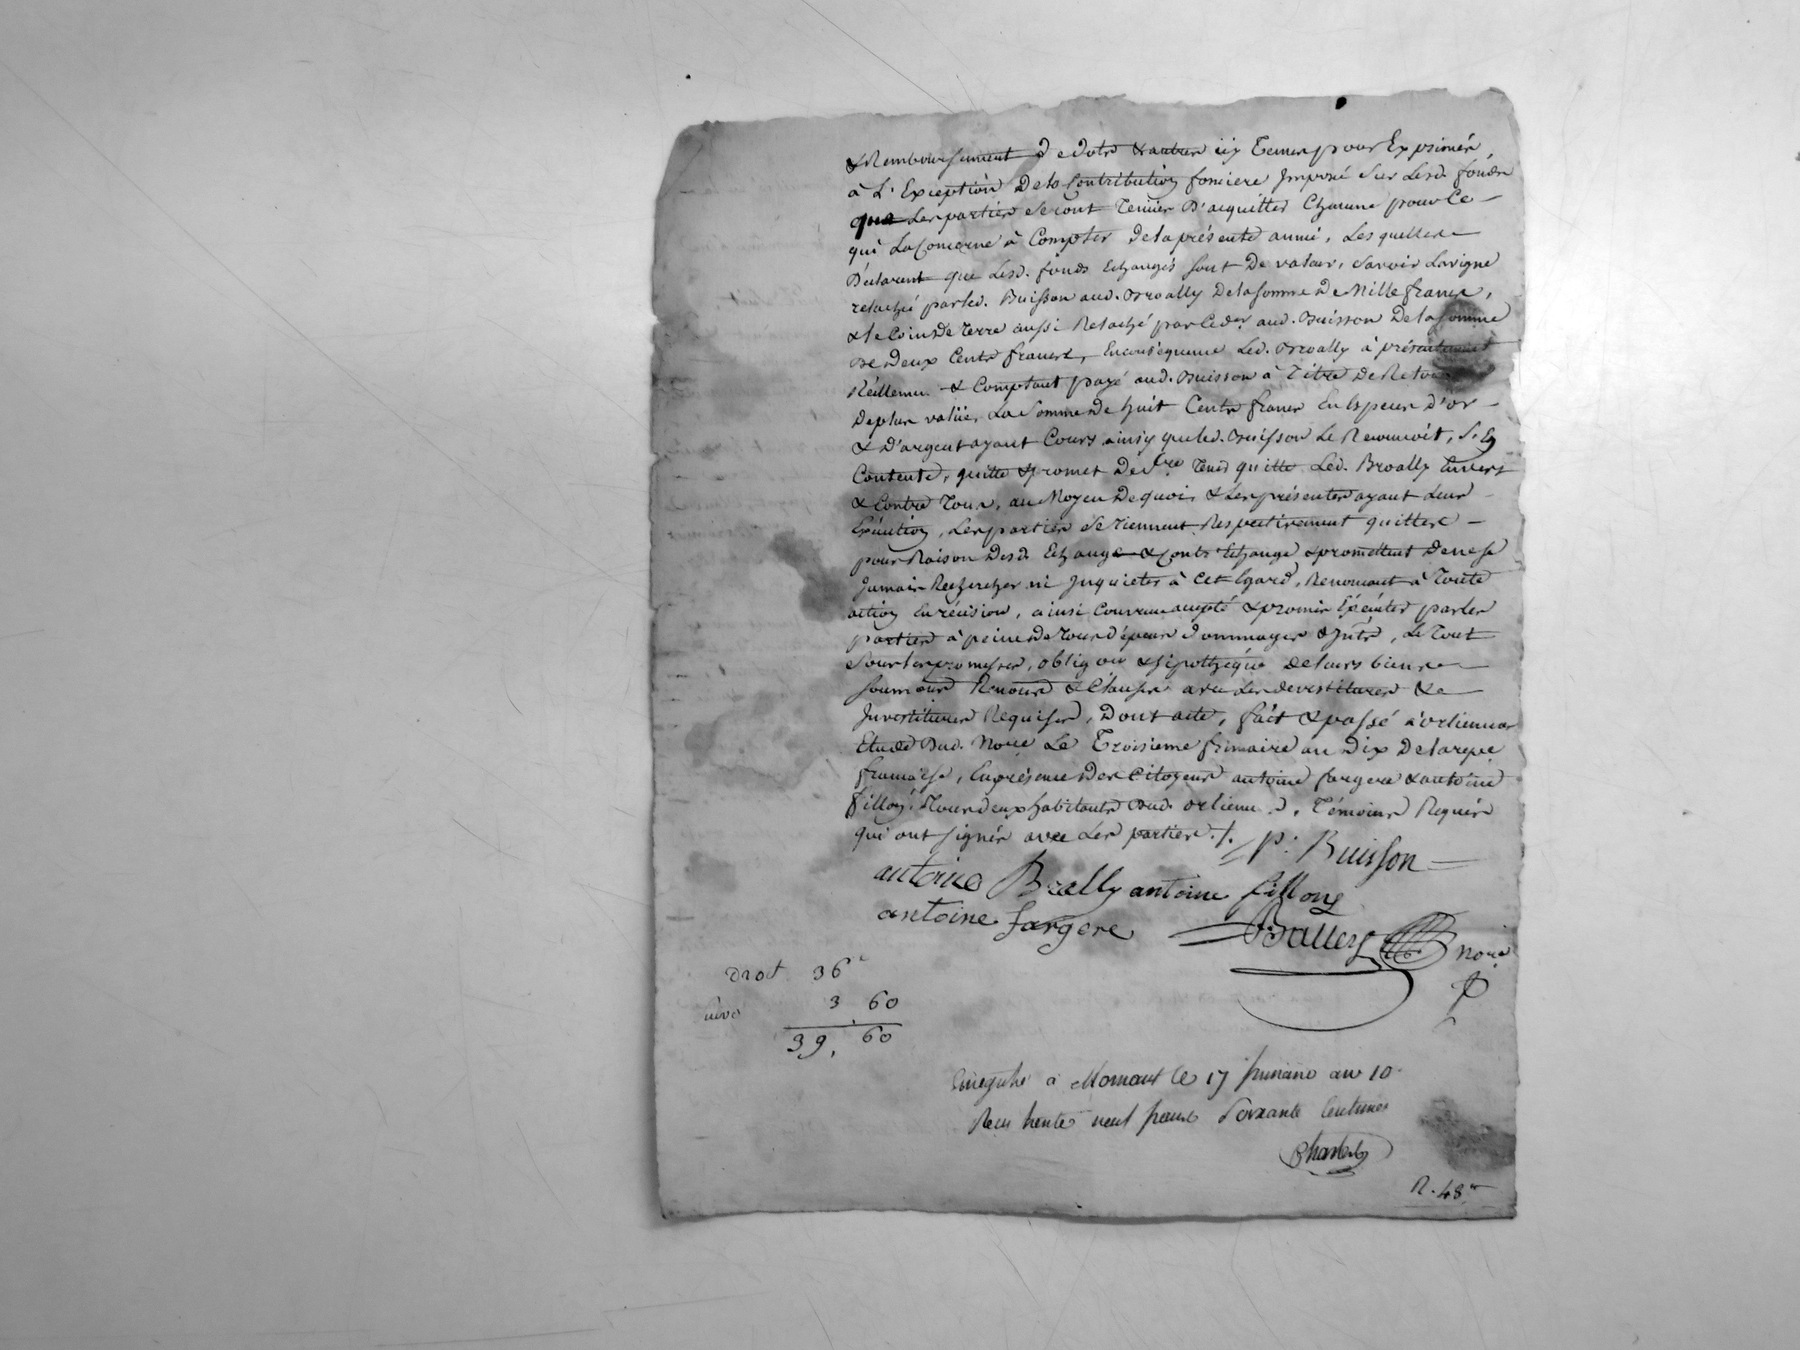 & Remboursement de dots & autres icy Tenus pour Exprimés,
à L'Exception de la Contribution fonciere Imposé sur Lesd. fonds
que Les parties seront Tenües D'acquitter Chacune pour Ce
qui La Concerne à Compter de la présente année, Lesquelles
Déclarent que Lesd. fonds Echangés sont De valeur, savoir La vigne
relaché par led. Buisson aud. Broally De la somme De Mille francs,
& le Coin de Terre aussi Relaché par Ced.er aud. Buisson De la somme
De Deux Cents francs, En conséquence Led. Broally à présentement
Réellemt. & Comptant payé aud. Buisson à Titre De Retour
De plus valüe, La Somme de huit Cents francs En Espèces D'or
& D'argent ayant Cours ainsy que led. Buisson Le Reconnoit, S'En
Contente, quitte & promet De fre Tenir quitte Led. Broally Envers
& Contre Tous, au Moyen De quoi & Les présentes ayant Leur
Exécution, Les parties se Tiennent Respectivement quittes
pour Raison Desd. Echange & Contr'Echange & promettent De ne se
Jamais Rechercher ni Inquieter à Cet Egard, Renoncant à Toute
action En récision, ainsi Convenu accepté & promis Exécuter par les
parties à peine de Tous dépens dommages & Intts, Le Tout
sous les promesses, oblig on & hipothéque de leurs biens
soumons Renons & Clauses avec Les devestitures &
Investitures Requises, Dont acte, fait & passé à orlienas
Etude Dud. Nore Le Troisieme frimaire an Dix De la repe
francaise, En présence Des Citoyens antoine fargere & antoine
fillon, Tous deux habitants Dud. orlienas, Témoins Requis
qui ont signés avec Les parties ./.
P. Buisson
antoine Brally antoine fillon
antoine fargere
Ballery Nore
Droit 36
3 60
39, 60
Enregistré à Mornant le 17 frimaire an 10
Recu trente neuf francs soixante Centimes
R. 48